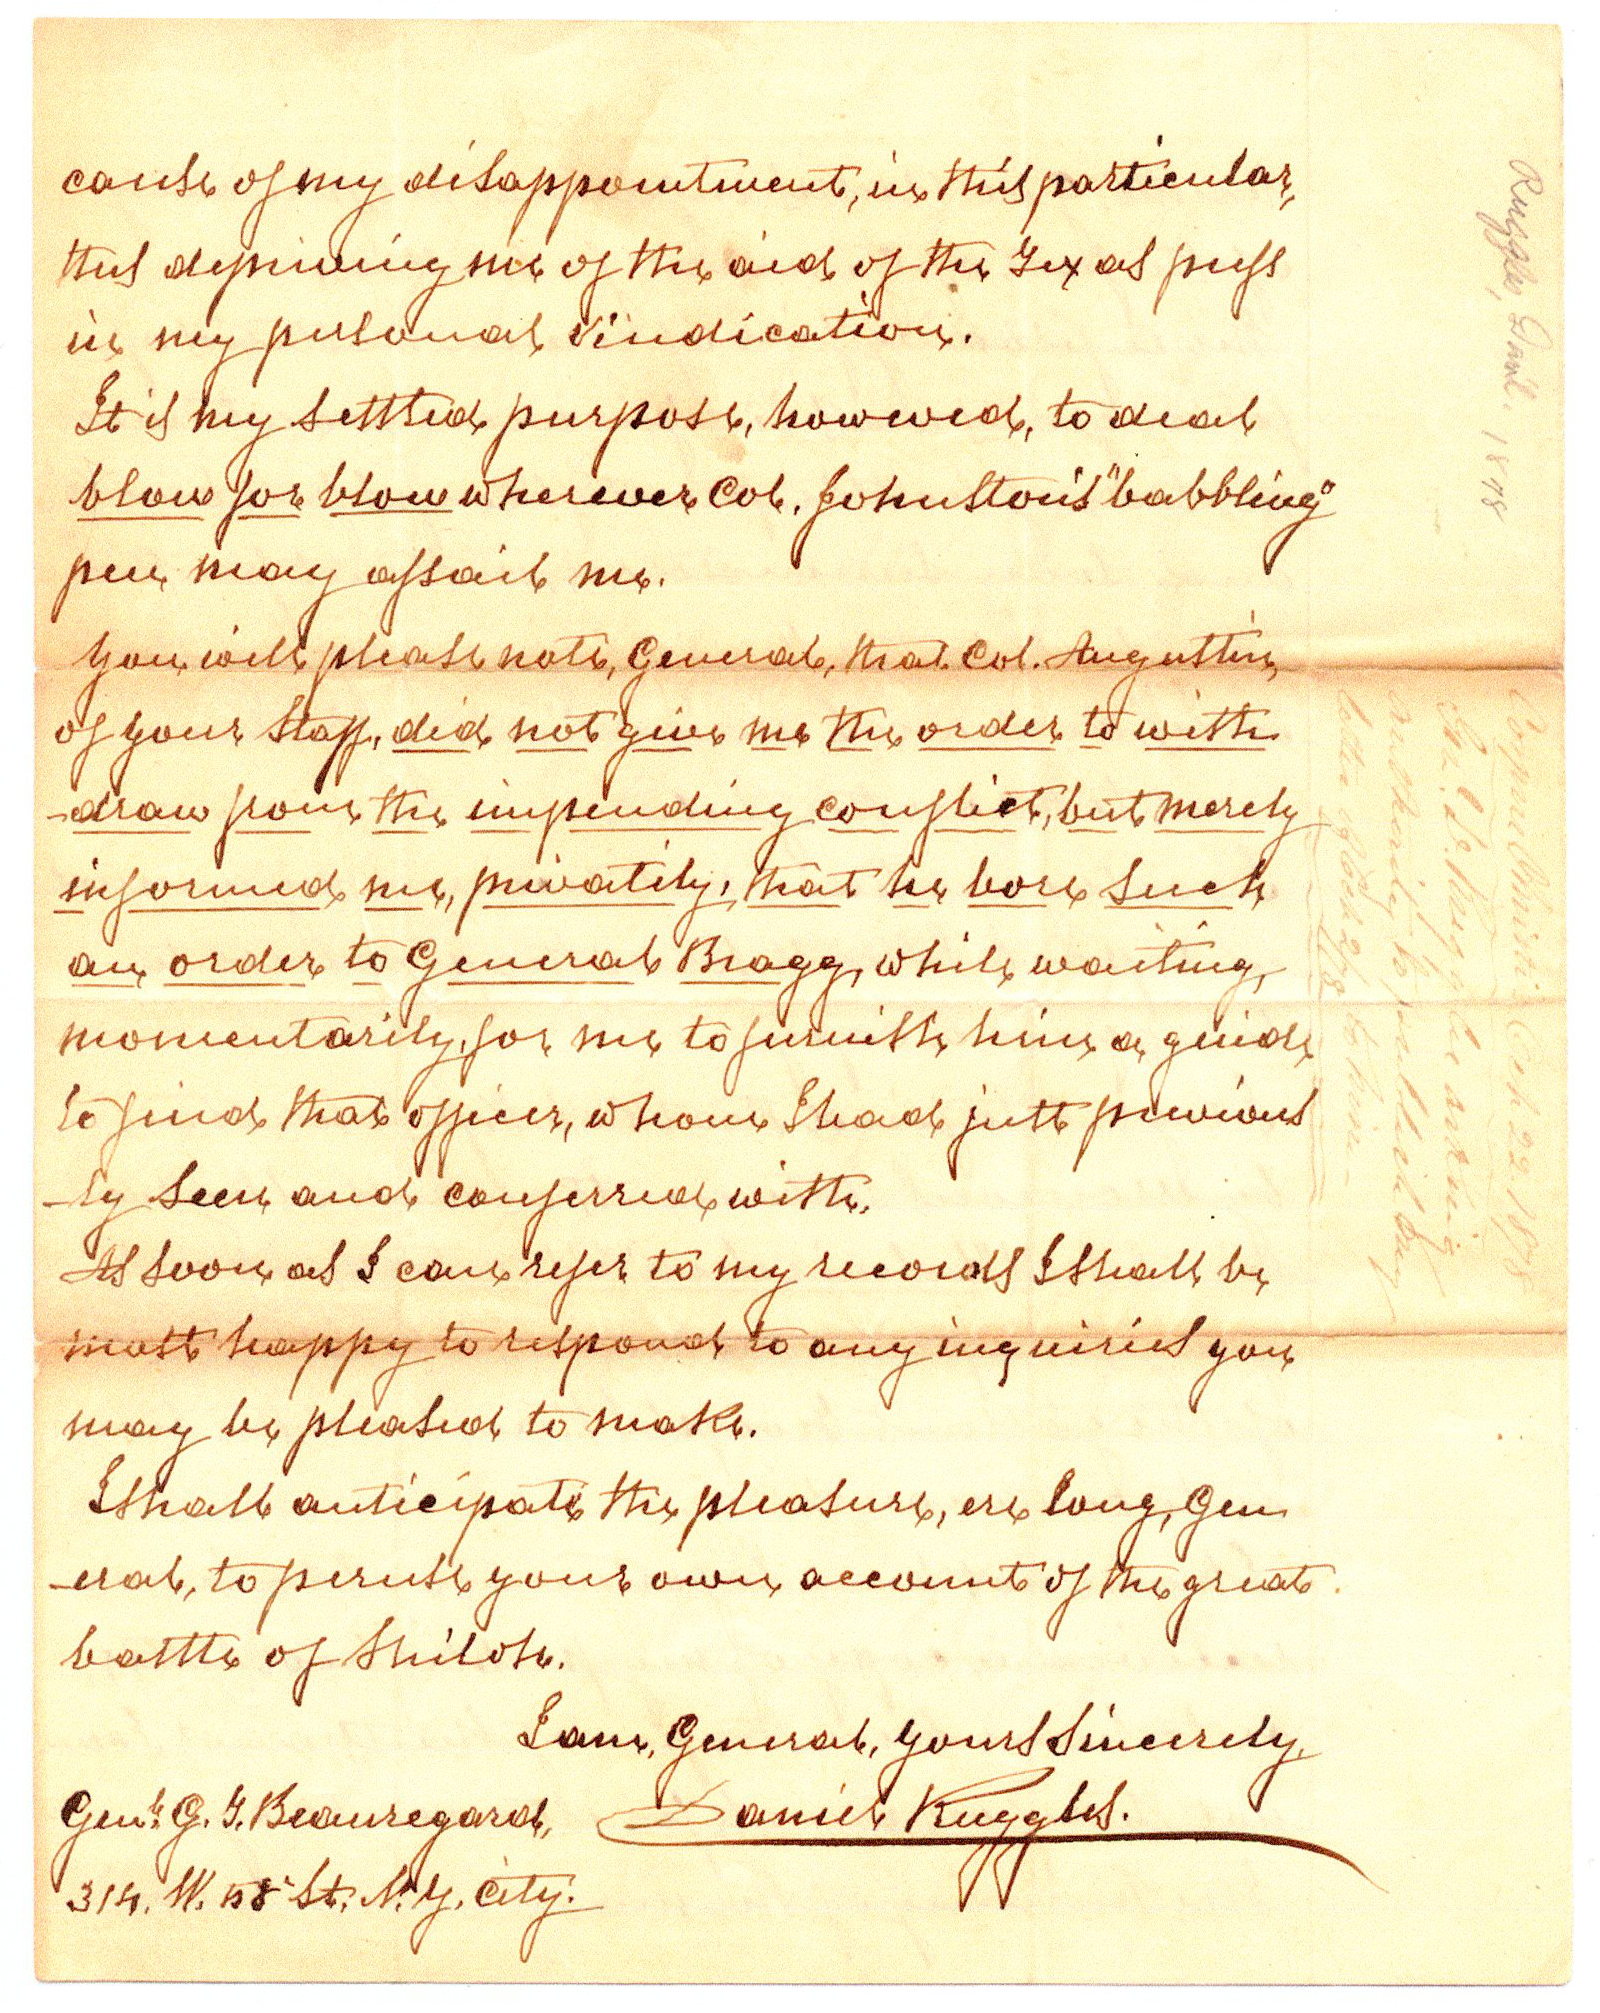 cause of my disappointment, in this particular,
thus depriving me of the aid of the Texas press
in my personal vindication.
It is my settled purpose, however, to deal
blow for blow wherever Col. Johnston's "babbling"
pen may assail me.
You will please note, General, that Col. Augustin,
of your Staff, did not give me the order to with
-draw from the impending conflict, but merely
informed me, privately, that he bore such
an order to General Bragg, while waiting,
momentarily, for me to furnish him a guide
to find that officer, whom I had just previous
-ly seen and conferred with.
As soon as I can refer to my records I shall be
most happy to respond to any inquiries you
may be pleased to make.
I shall anticipate the pleasure, ere long, Gen
-eral, to peruse your own account of the great
battle of Shiloh.
I am, General, Yours Sincerely,
Daniel Ruggles.
Genl. G. T. Beauregard,
314. W. 58 St. N. Y. City.
Ruggles, Danl. 1878
22 1878
Ruggles
authority to publish
letter of Oct 2 /78 to him